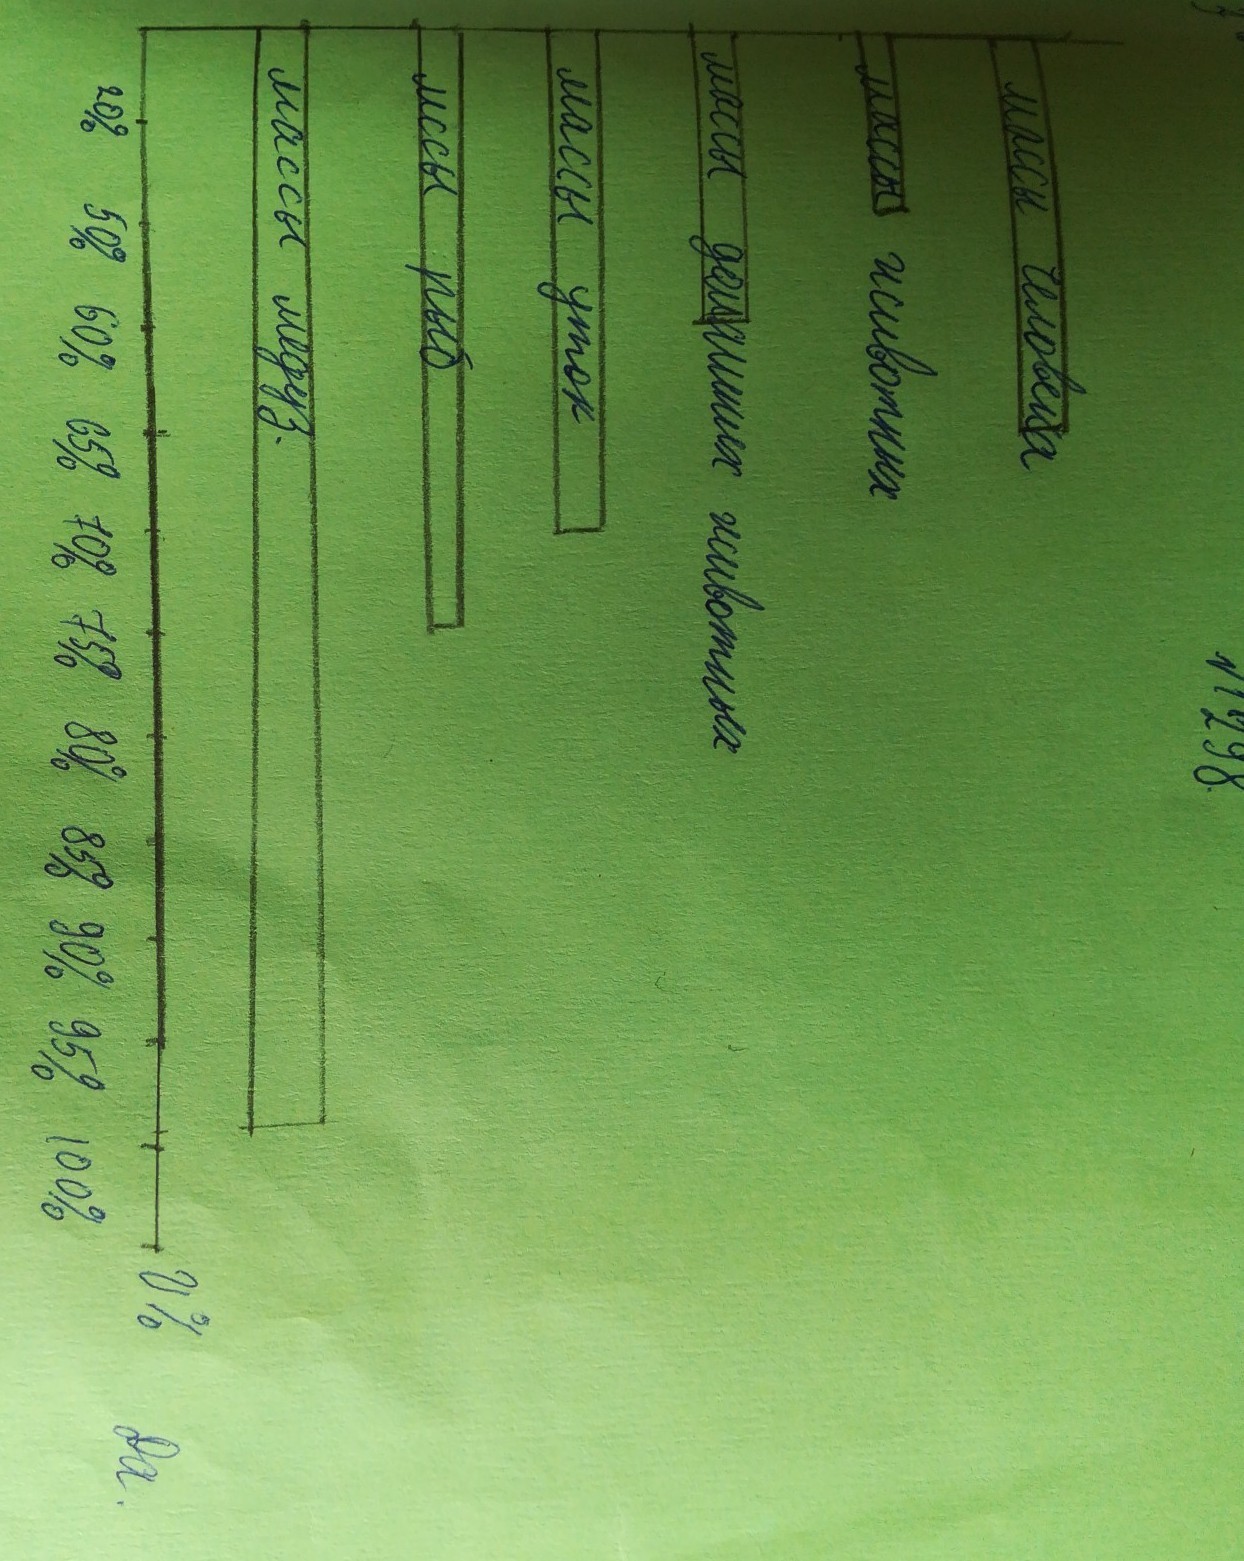 N1298.
массы человека
массы животних
массы домашних животных
массы уток
мссы рыб
массы медуз.
20% 50% 60% 65% 70% 75% 80% 85% 90% 95% 100%
V%